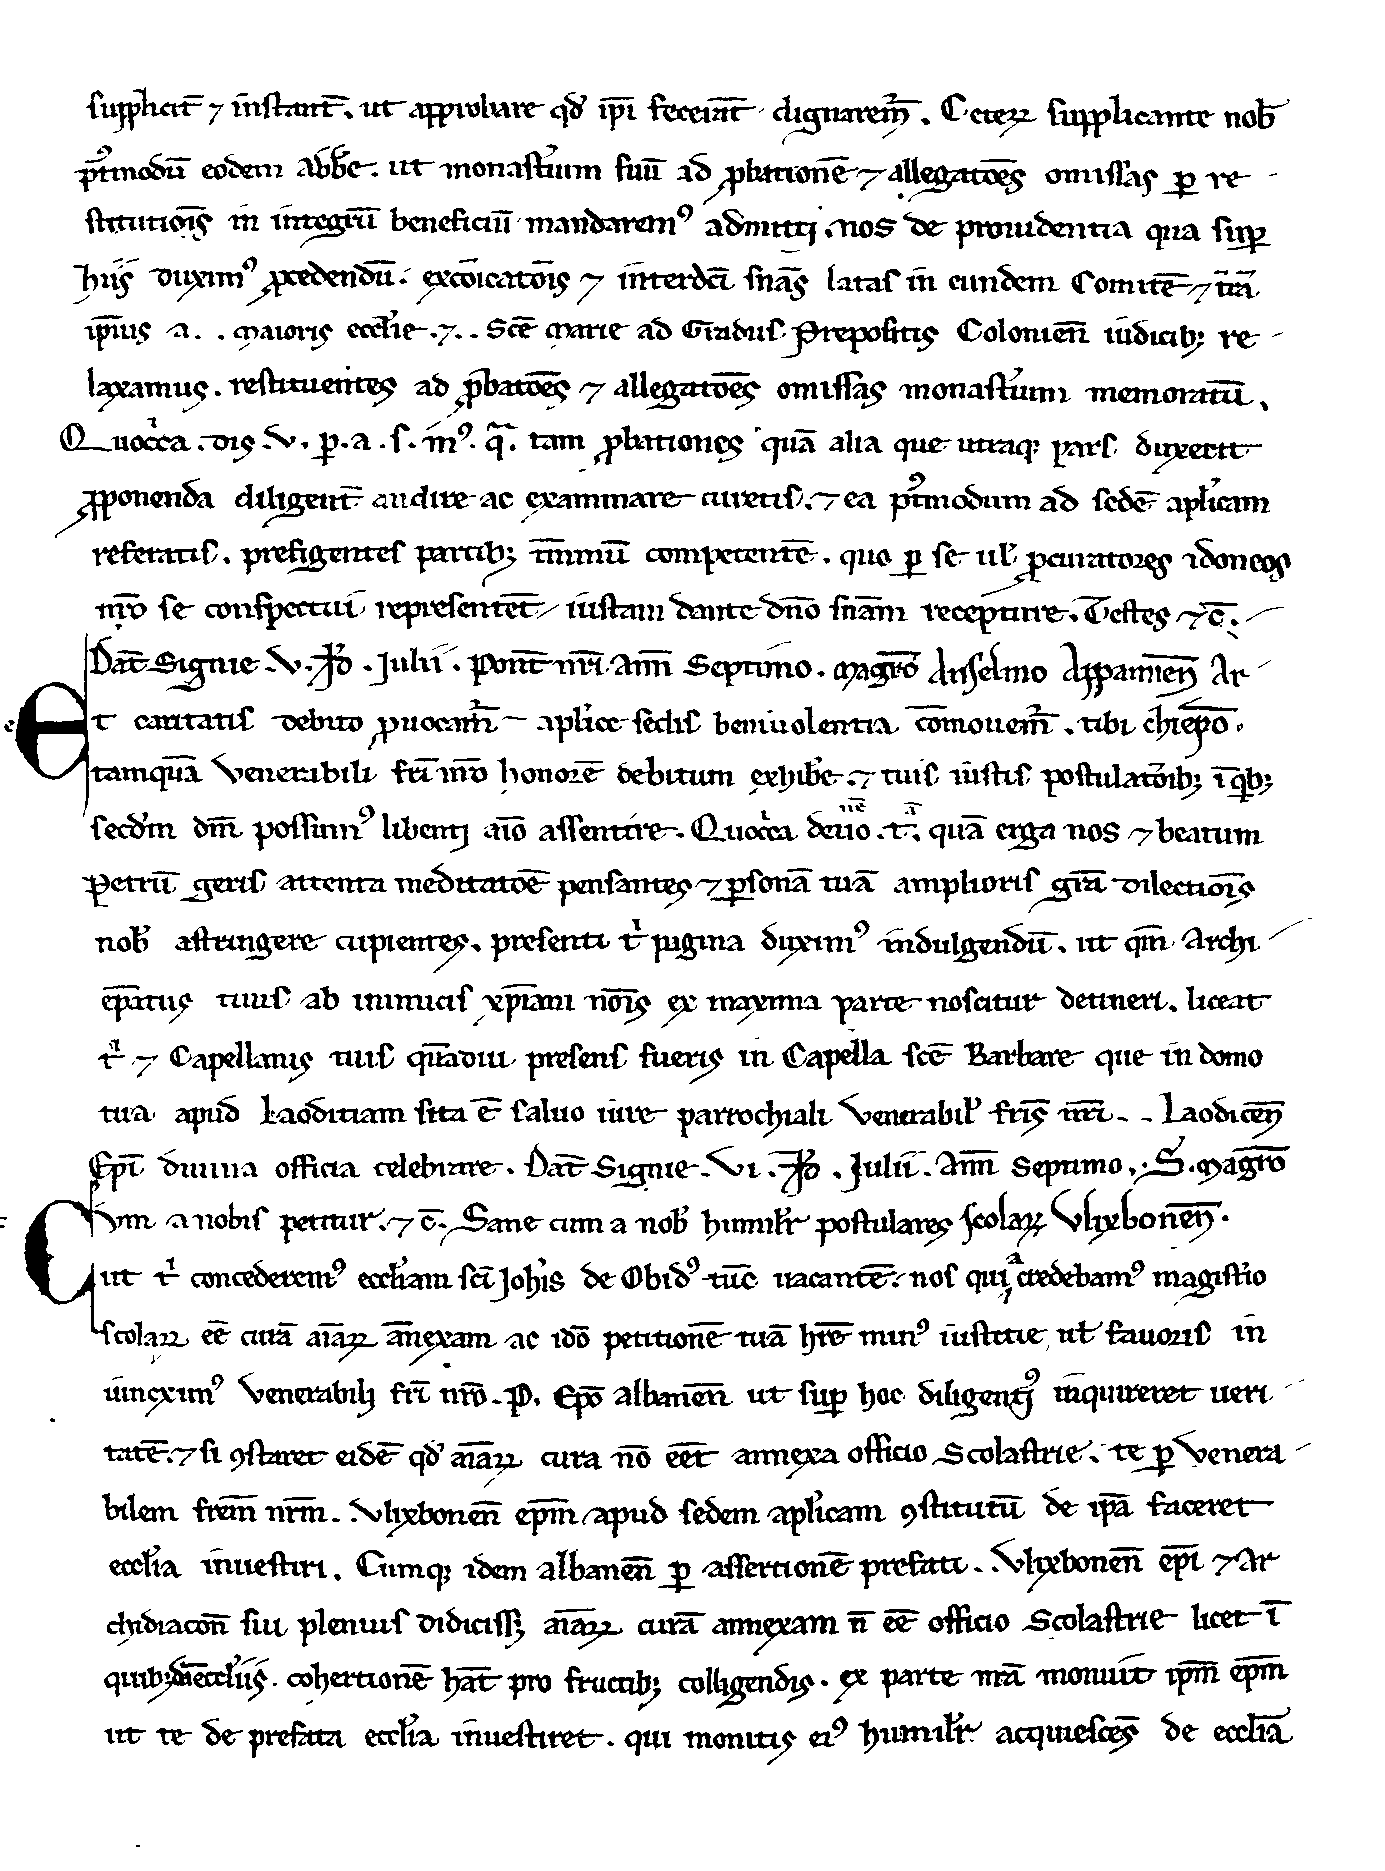 supplicit̄ ⁊ instant̄. ut approbare qd̓ ip̄i fecerāt dignarem̄. Ceteꝝ supplicante nob̄
p̓tmodū eodem abb̄e. ut monast̓ium suū ad ꝓbationē ⁊ allegatōes omissas ꝑ re-
stitutiōis in integrū beneficiū mandarem⁹ admitti. nos de prouidentia qua sup̱
hiis duxim⁹ ꝓcedendū. excōicatōis ⁊ interdc̄i sn̄as latas in eundem Comitē ⁊ t̄rā
ip̄ius a . . maioris eccl̄ie . ⁊ . . Sc̄e Marie ad Gradus Prepositis Colonien̄ iudicib; re-
laxamus. restituentes ad ꝓbatōes ⁊ allegatōes omissas monast̓ium memoratū.
Quocc̓a . dis . V . p . a . s . m⁹ . q̄ . tam ꝓbationes quā alia que utraq; pars duxerit
ꝓponenda diligent̄ audire ac examinare curetis . ⁊ ea p̓tmodum ad sedē ap̄licam
referatis . prefigentes partib; t̄minū competentē . quo ꝑ se ul̓ ꝓcuratores idoneos
nr̄o se conspectui representēt iustam dante dn̄o sn̄am recepture . Testes ⁊c̄ .
Dat̄ Signie . V . K̄o . Julii . Pont̄ nr̄i Ann̄ Septimo . Magr̄o Anselmo Appamien̄ Ar-
Et caritatis debito ꝓuocam̄ ⁊ ap̄lice sedis beniuolentia cōmouem̄ . tibi chiep̄o .
tamquā Venerabili fr̄i nr̄o honorē debitum exhib̓e . ⁊ tuis iustis postulatōib; ī q̓b;
secd̄m dm̄ possum⁹ libenti aīo assentire . Quocc̓a deuo . t̄ . quā erga nos ⁊ beatum
Petrū geris attenta meditatōe pensantes ⁊ ꝑsonā tuā amplioris gr̄a dilectiōis
nob̄ astringere cupientes . presenti t̓ pagina duxim⁹ indulgendū . ut qm̄ Archi-
ep̄atus tuus ab inimicis xp̄iani nōis ex maxima parte noscitur detineri . liceat
t̓ ⁊ Capellanis tuis quādiu presens fueris in Capella sc̄e Barbare que in domo
tua apud Laoditiam sita ē saluo iure parrochiali Venerabil̓ fr̄is nr̄i . . Laodicen̄
Ep̄i diuina officia celebrare . Dat̄ Signie . VI . K̄o . Julii . Ann̄ Septimo . S . Magr̄o
Cum a nobis petitur . ⁊c̄ . Sane cum a nob̄ humilit̓ postulares scolaꝝ Vlixbonen̄ .
ut t̓ concederem⁹ eccl̄iam sc̄i Joh̄is de Obid⁹ tūc uacantē . nos qui credebam⁹ magist̓io
scolaꝝ eē curā aīaꝝ annexam ac idō petitionē tuā h̄re min⁹ iustitie ul̓ fauoris in-
iunxim⁹ Venerabili fr̄i nr̄o . P . Ep̄o albanen̄ ut sup̱ hoc diligenti⁹ inquireret ueri-
tatē . ⁊ si ꝯstaret eidē qd̓ aīaꝝ cura nō eēt annexa officio Scolastrie . te ꝑ Venera-
bilem frēm nr̄m . Vlixbonen̄ ep̄m apud sedem ap̄licam ꝯstitutū de ip̄a faceret
eccl̄ia inuestiri . Cumq; idem albanen̄ ꝑ assertionē prefati . Vlixbonen̄ ep̄i ⁊ Ar-
chidiacon̄ sui plenius didicissꝫ aīaꝝ curā annexam n̄ eē officio Scolastrie licet ī
quib;dā eccl̄iis . cohertionē hāt pro fructib; colligendis . ex parte nr̄a monuit ip̄m ep̄m
ut te de prefata eccl̄ia inuestiret . qui monitis ei⁹ humilit̓ acquiescēs de eccl̄ia